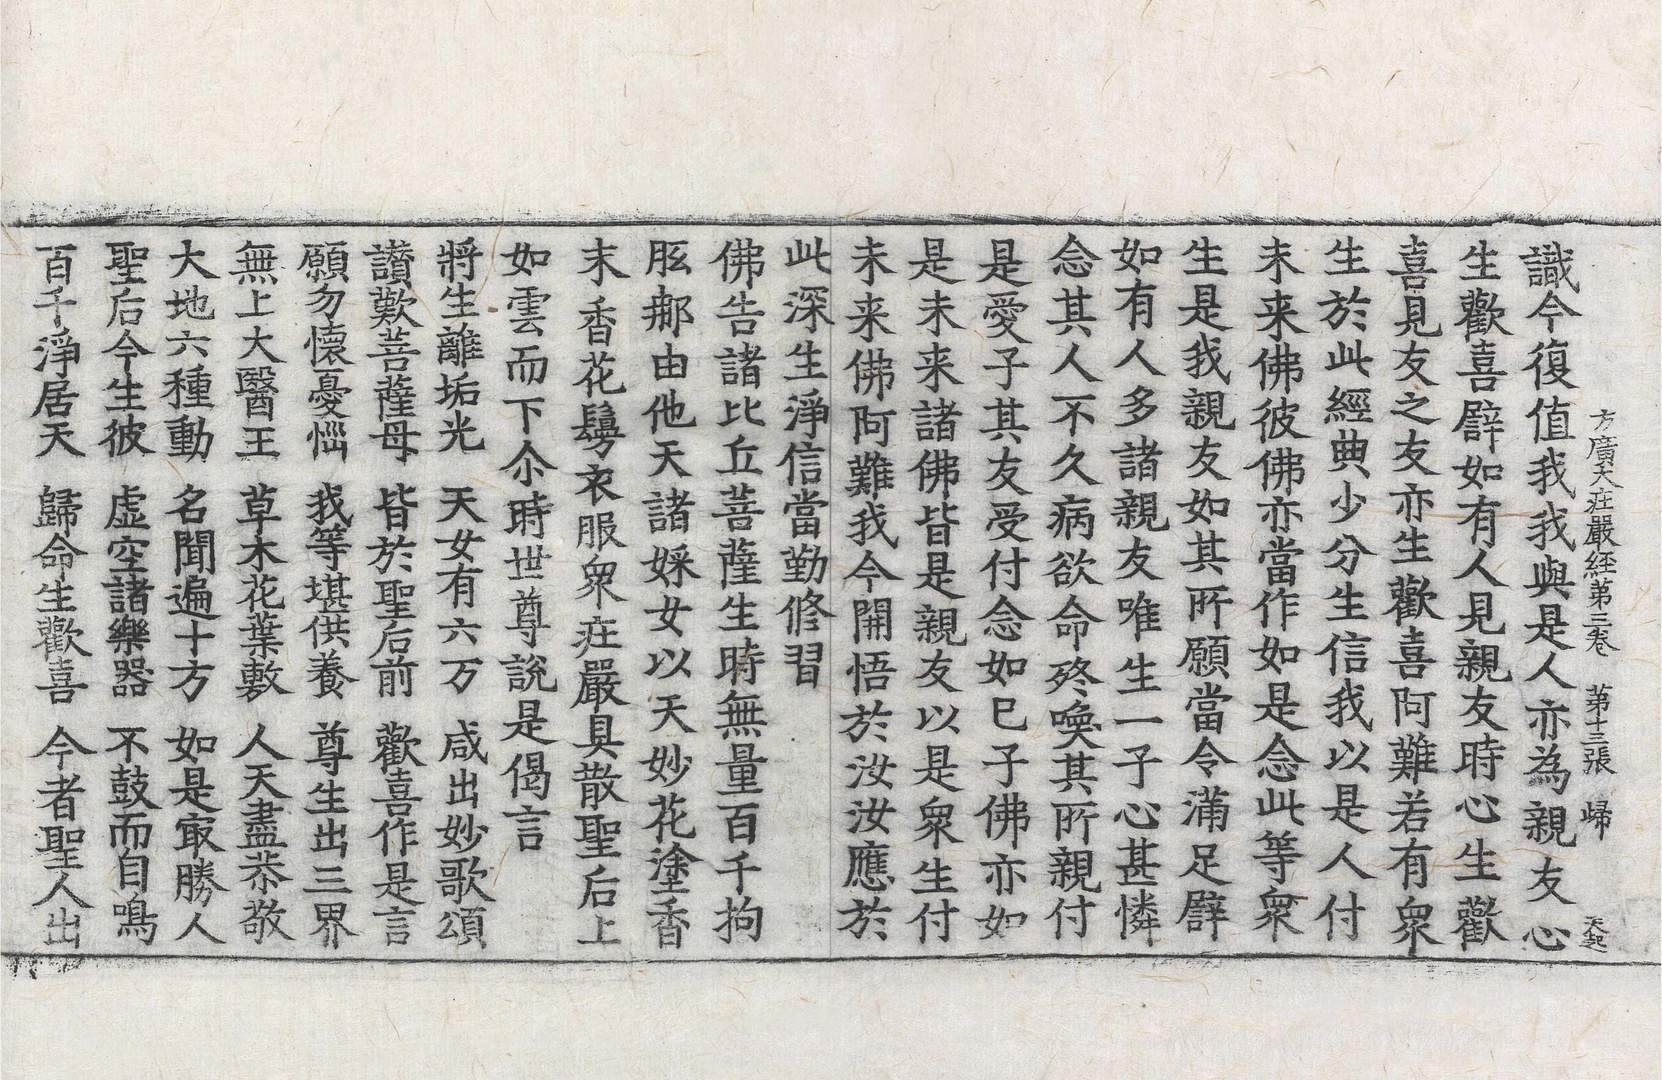 方廣大莊嚴經第三卷 第十三張 歸 天起
識今復值我我與是人亦為親友心
生歡喜譬如有人見親友時心生歡
喜見友之友亦生歡喜阿難若有衆
生於此經典少分生信我以是人付
未来佛彼佛亦當作如是念此等衆
生是我親友如其所願當令滿足譬
如有人多諸親友唯生一子心甚憐
念其人不久病欲命終喚其所親付
是愛子其友受付念如已子佛亦如
是未来諸佛皆是親友以是衆生付
未来佛阿難我今開悟於汝汝應於
此深生淨信當勤修習
佛告諸比丘菩薩生時無量百千拘
胝那由他天諸婇女以天妙花塗香
末香花鬘衣服衆莊嚴具散聖后上
如雲而下尒時世尊說是偈言
將生離垢光 天女有六万 咸出妙歌頌
讃歎菩薩母 皆於聖后前 歡喜作是言
願勿懷憂惱 我等堪供養 尊生出三界
無上大醫王 草木花葉敷 人天盡恭敬
大地六種動 名聞遍十方 如是㝡勝人
聖后今生彼 虛空諸樂器 不鼓而自鳴
百千淨居天 歸命生歡喜 今者聖人出